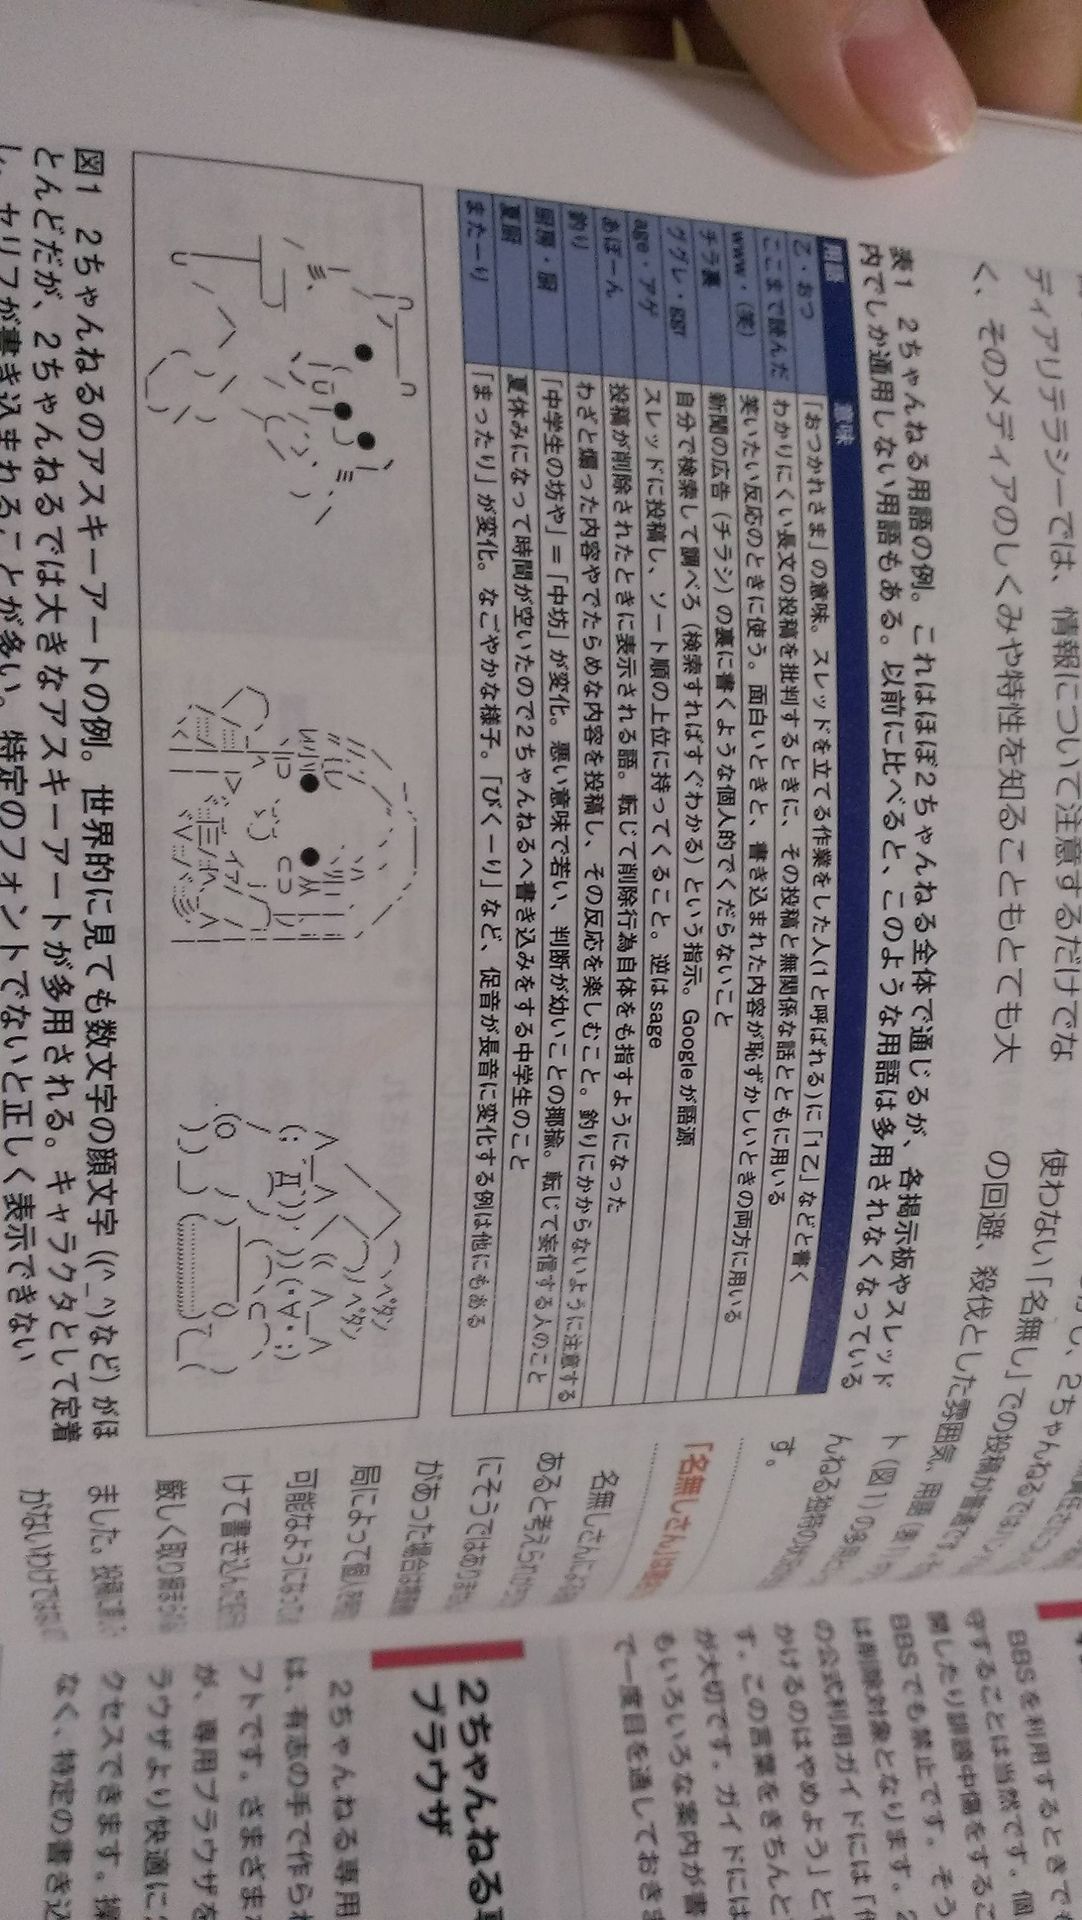 ディアリテラシーでは、情報について注意するだけでな
く、そのメディアのしくみや特性を知ることもとても大
表1 2ちゃんねる用語の例。これはほぼ2ちゃんねる全体で通じるが、各掲示板やスレッド
内でしか通用しない用語もある。以前に比べると、このような用語は多用されなくなっている
用語 意味
乙・おつ 「おつかれさま」の意味。スレッドを立てる作業をした人(1と呼ばれる)に「1乙」などと書く
ここまで読んだ わかりにくい長文の投稿を批判するときに、その投稿と無関係な話とともに用いる
www・(笑) 笑いたい反応のときに使う。面白いときと、書き込まれた内容が恥ずかしいときの両方に用いる
チラ裏 新聞の広告(チラシ)の裏に書くような個人的でくだらないこと
ググレ・ggr 自分で検索して調べろ(検索すればすぐわかる)という指示。Googleが語源
age・アゲ スレッドに投稿し、ソート順の上位に持ってくること。逆はsage
あぼーん 投稿が削除されたときに表示される語。転じて削除行為自体をも指すようになった
釣り わざと煽った内容やでたらめな内容を投稿し、その反応を楽しむこと。釣りにかからないように注意する
厨房・厨 「中学生の坊や」=「中坊」が変化。悪い意味で若い、判断が幼いことの揶揄。転じて妄信する人のこと
夏厨 夏休みになって時間が空いたので2ちゃんねるへ書き込みをする中学生のこと
またーり 「まったり」が変化。なごやかな様子。「びくーり」など、促音が長音に変化する例は他にもある
ペタン
ペタン
図1 2ちゃんねるのアスキーアートの例。世界的に見ても数文字の顔文字((^_^)など)がほ
とんどだが、2ちゃんねるでは大きなアスキーアートが多用される。キャラクタとして定着
し、セリフが書き込まれることが多い。特定のフォントでないと正しく表示できない
使わない「名無し」での投稿が
の回避、殺伐とした雰囲気、用語
ト(図1)の
んねる独特の
す。
「名無しさん」は
名無しさんによる
あると考えられ
にそうではありま
があった場合は
局によって個人
可能なようになって
けて書き込んだ
厳しく取り締まら
ました。投稿
がないわけではな
BBSを利用するときでも
守することは当然です。個
開したり誹謗中傷をするこ
BBSでも禁止です。そう
は削除対象となります。2
の公式利用ガイドには「
かけるのはやめよう」と
す。この言葉をきちんと
が大切です。ガイドには
もいろいろな案内が書
で一度目を通しておきま
2ちゃんねる専
ブラウザ
2ちゃんねる専用
は、有志の手で作られ
フトです。さまざまな
が、専用ブラウザを
ラウザより快適に
クセスできます。操
なく、特定の書き込